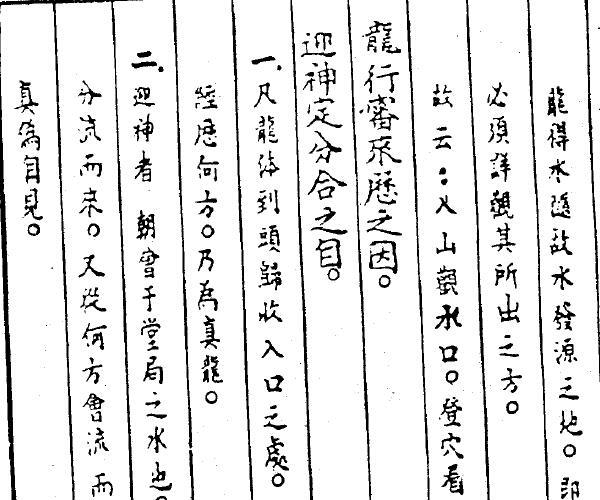 龍得水隨故水發源之地。即
必須詳觀其所出之方。
故云：入山觀水口。登穴看
龍行審來歷之因。
迎神定分合之自。
一.凡龍海到頭歸收入口之處。
經歷何方。乃為真龍。
二.迎神者 朝會于堂局之水也。
分流而來。又從何方會流而
真偽自見。